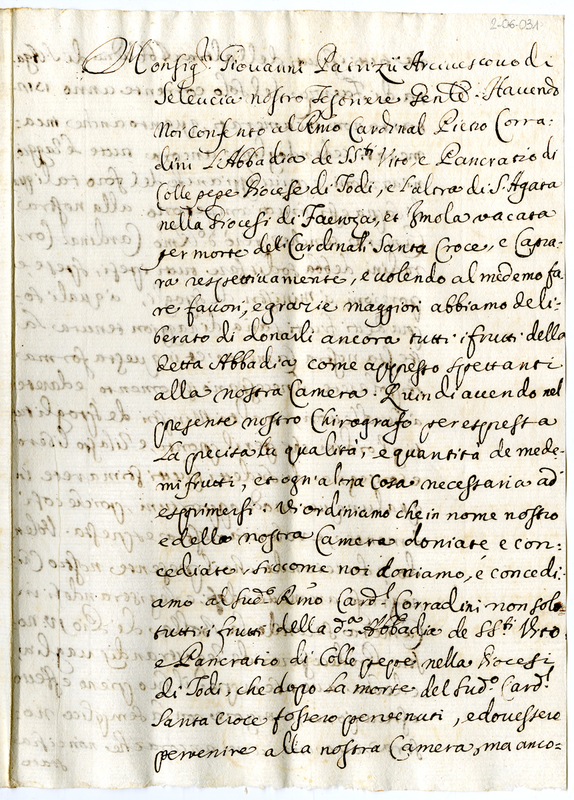 2-06-031
Monsig.r Giovanni Patrizii Arcivescovo di
Seleucia nostro Tesoriere Gen̄le. Havendo
Noi conferito al R̄mo Cardinal Pietro Corra-
dini l'Abbadia de SS.ti Vito e Pancratio di
Collepepe Diocese di Todi, e l'altra di S. Agata
nella Diocesi di Faenza, et Imola vacata
per morte delli Cardinali Santa Croce, e
respettivamente, e volendo al medemo fa
re favori, e grazie maggiori abbiamo deli-
berato di donarli ancora tutti i frutti della
detta Abbadia come appresso spettanti
alla nostra Camera. Quindi avendo nel
presente nostro Chirografo per espressa
La precisa lu qualità, e quantità de mede-
mi frutti, et ogn'altra Cosa necessaria ad
esprimersi. Vi ordiniamo che in nome nostro
e della nostra Camera doniate e con-
cediate, siccome noi doniamo, e concedi-
amo al Sud.o R̄mo Card.l Corradini non solo
tutti i frutti della d.a Abbadia de SS.ti Vito
e Pancratio di Collepepe nella Diocesi
di Todi, che dopo La morte del Sud.o Card.l
Santa Croce fossero pervenuti, e dovessero
pervenire alla nostra Camera, ma anco-